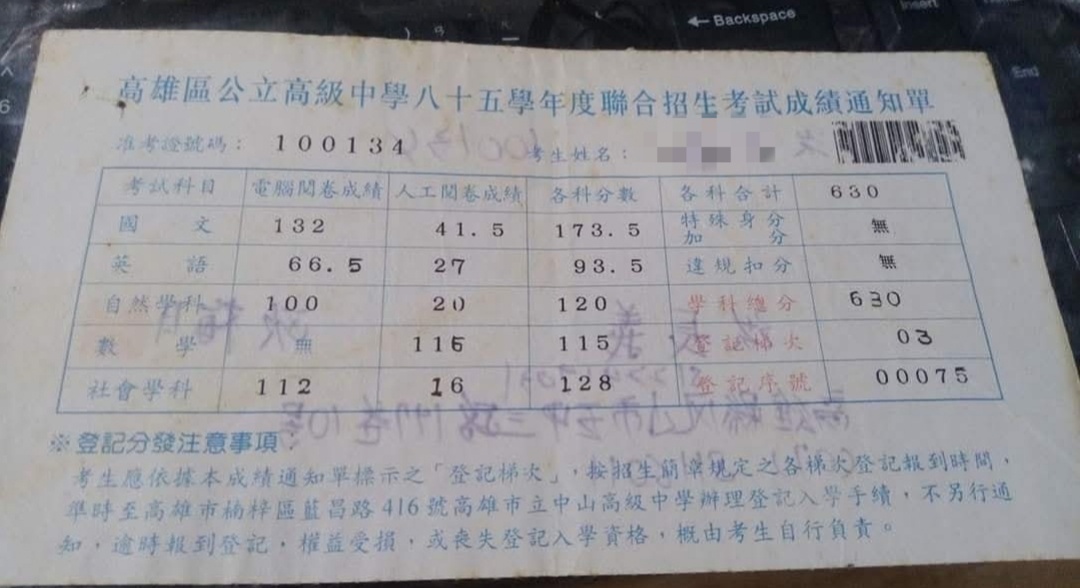 ← Backspace
Insert
End
6
高雄區公立高級中學八十五學年度聯合招生考試成績通知單
准考證號碼： 100134 考生姓名：
考試科目 電腦閱卷成績 人工閱卷成績 各科分數 各科合計 630
國文 132 41.5 173.5 特殊身分加分 無
英語 66.5 27 93.5 違規扣分 無
自然學科 100 20 120 學科總分 630
數學 無 115 115 登記梯次 03
社會學科 112 16 128 登記序號 00075
※登記分發注意事項：
考生應依據本成績通知單標示之「登記梯次」，按招生簡章規定之各梯次登記報到時間，
準時至高雄市楠梓區藍昌路416號高雄市立中山高級中學辦理登記入學手續，不另行通
知，逾時報到登記，權益受損，或喪失登記入學資格，概由考生自行負責。